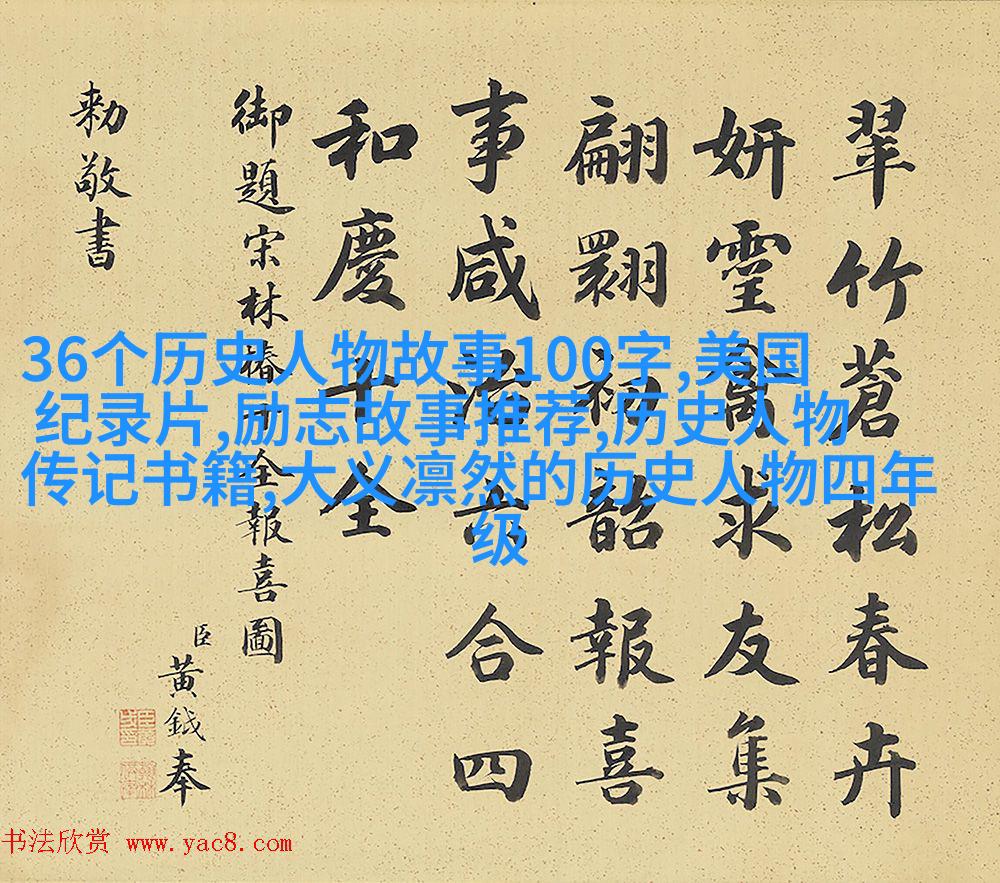 翠竹蒼松春卉
妍霊禽求友集
翩翾初韶報喜
事咸洽六合四
和慶十全
御題宋林椿十全報喜圖
臣黃鉞奉
勅敬書
36个历史人物故事100字,美国
纪录片,励志故事推荐,历史人物
传记书籍,大义凛然的历史人物四年
级
书法欣赏 www.yac8.com